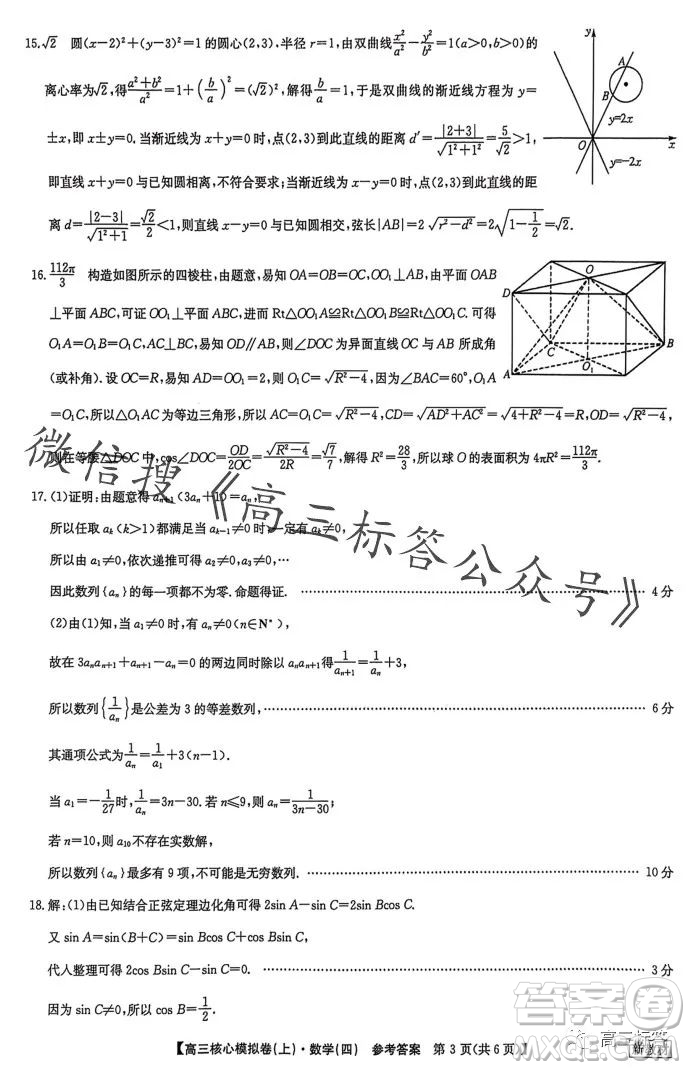 15.√2 圆(x-2)²+(y-3)²=1的圆心(2,3),半径r=1,由双曲线x²/a²-y²/b²=1(a>0,b>0)的
离心率为√2,得(a²+b²)/a²=1+(b/a)²=(√2)²,解得b/a=1,于是双曲线的渐近线方程为y=
±x,即x±y=0.当渐近线为x+y=0时,点(2,3)到此直线的距离d'=|2+3|/√(1²+1²)=5/√2>1,
即直线x+y=0与已知圆相离,不符合要求;当渐近线为x-y=0时,点(2,3)到此直线的距
离d=|2-3|/√(1²+1)=√2/2<1,则直线x-y=0与已知圆相交,弦长|AB|=2√(r²-d²)=2√(1-1/2)=√2.
y
A
B
y=2x
O
x
y=-2x
16.112π/3 构造如图所示的四棱柱,由题意,易知OA=OB=OC,OO₁⊥AB,由平面OAB
⊥平面ABC,可证OO₁⊥平面ABC,进而Rt△OO₁A≌Rt△OO₁B≌Rt△OO₁C.可得
O₁A=O₁B=O₁C,AC⊥BC,易知OD∥AB,则∠DOC为异面直线OC与AB所成角
(或补角).设OC=R,易知AD=OO₁=2,则O₁C=√(R²-4),因为∠BAC=60°,O₁A
=O₁C,所以△O₁AC为等边三角形,所以AC=O₁C=√(R²-4),CD=√(AD²+AC²)=√(4+R²-4)=R,OD=√(R²-4),
则在等腰△DOC中,cos∠DOC=OD/2OC=√(R²-4)/2R=√7/7,解得R²=28/3,所以球O的表面积为4πR²=112π/3.
D
O
C
B
A
O₁
17.(1)证明:由题意得aₙ₊₁(3aₙ+1)=aₙ,
所以任取aₖ(k>1)都满足当aₖ₋₁≠0时,一定有aₖ≠0,
所以由a₁≠0,依次递推可得a₂≠0,a₃≠0,…
因此数列{aₙ}的每一项都不为零.命题得证. 4分
(2)由(1)知,当a₁≠0时,有aₙ≠0(n∈N*),
故在3aₙaₙ₊₁+aₙ₊₁-aₙ=0的两边同时除以aₙaₙ₊₁得1/aₙ₊₁=1/aₙ+3,
所以数列{1/aₙ}是公差为3的等差数列, 6分
其通项公式为1/aₙ=1/a₁+3(n-1).
当a₁=-1/27时,1/aₙ=3n-30.若n≤9,则aₙ=1/(3n-30);
若n=10,则a₁₀不存在实数解,
所以数列{aₙ}最多有9项,不可能是无穷数列. 10分
18.解:(1)由已知结合正弦定理边化角可得2sin A-sin C=2sin Bcos C.
又sin A=sin(B+C)=sin Bcos C+cos Bsin C,
代入整理可得2cos Bsin C-sin C=0. 3分
因为sin C≠0,所以cos B=1/2.
【高三核心模拟卷(上)·数学(四) 参考答案 第3页(共6页)】
新教材
微信搜《高三标答公众号》
答案圈
高三标答